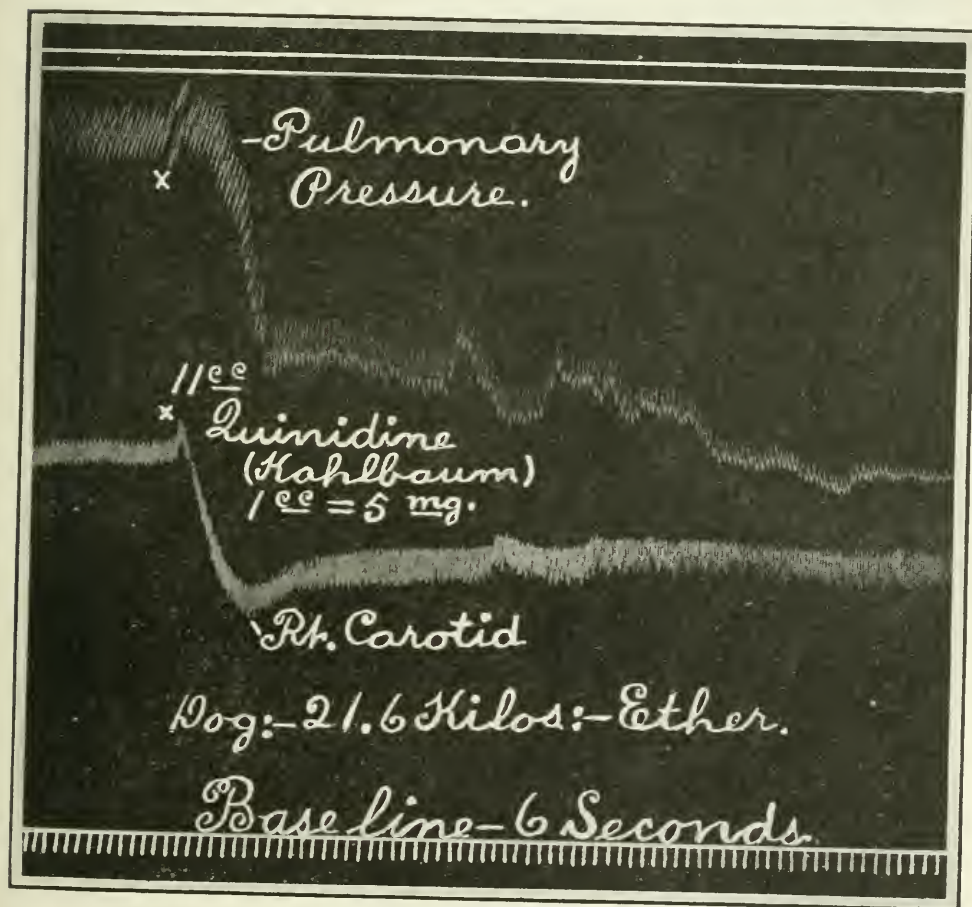 -Pulmonary
Pressure.
x
11cc
x
Quinidine
(Kahlbaum)
1 cc = 5 mg.
Rt. Carotid
Dog:-21.6 Kilos:-Ether.
Base line-6 Seconds.